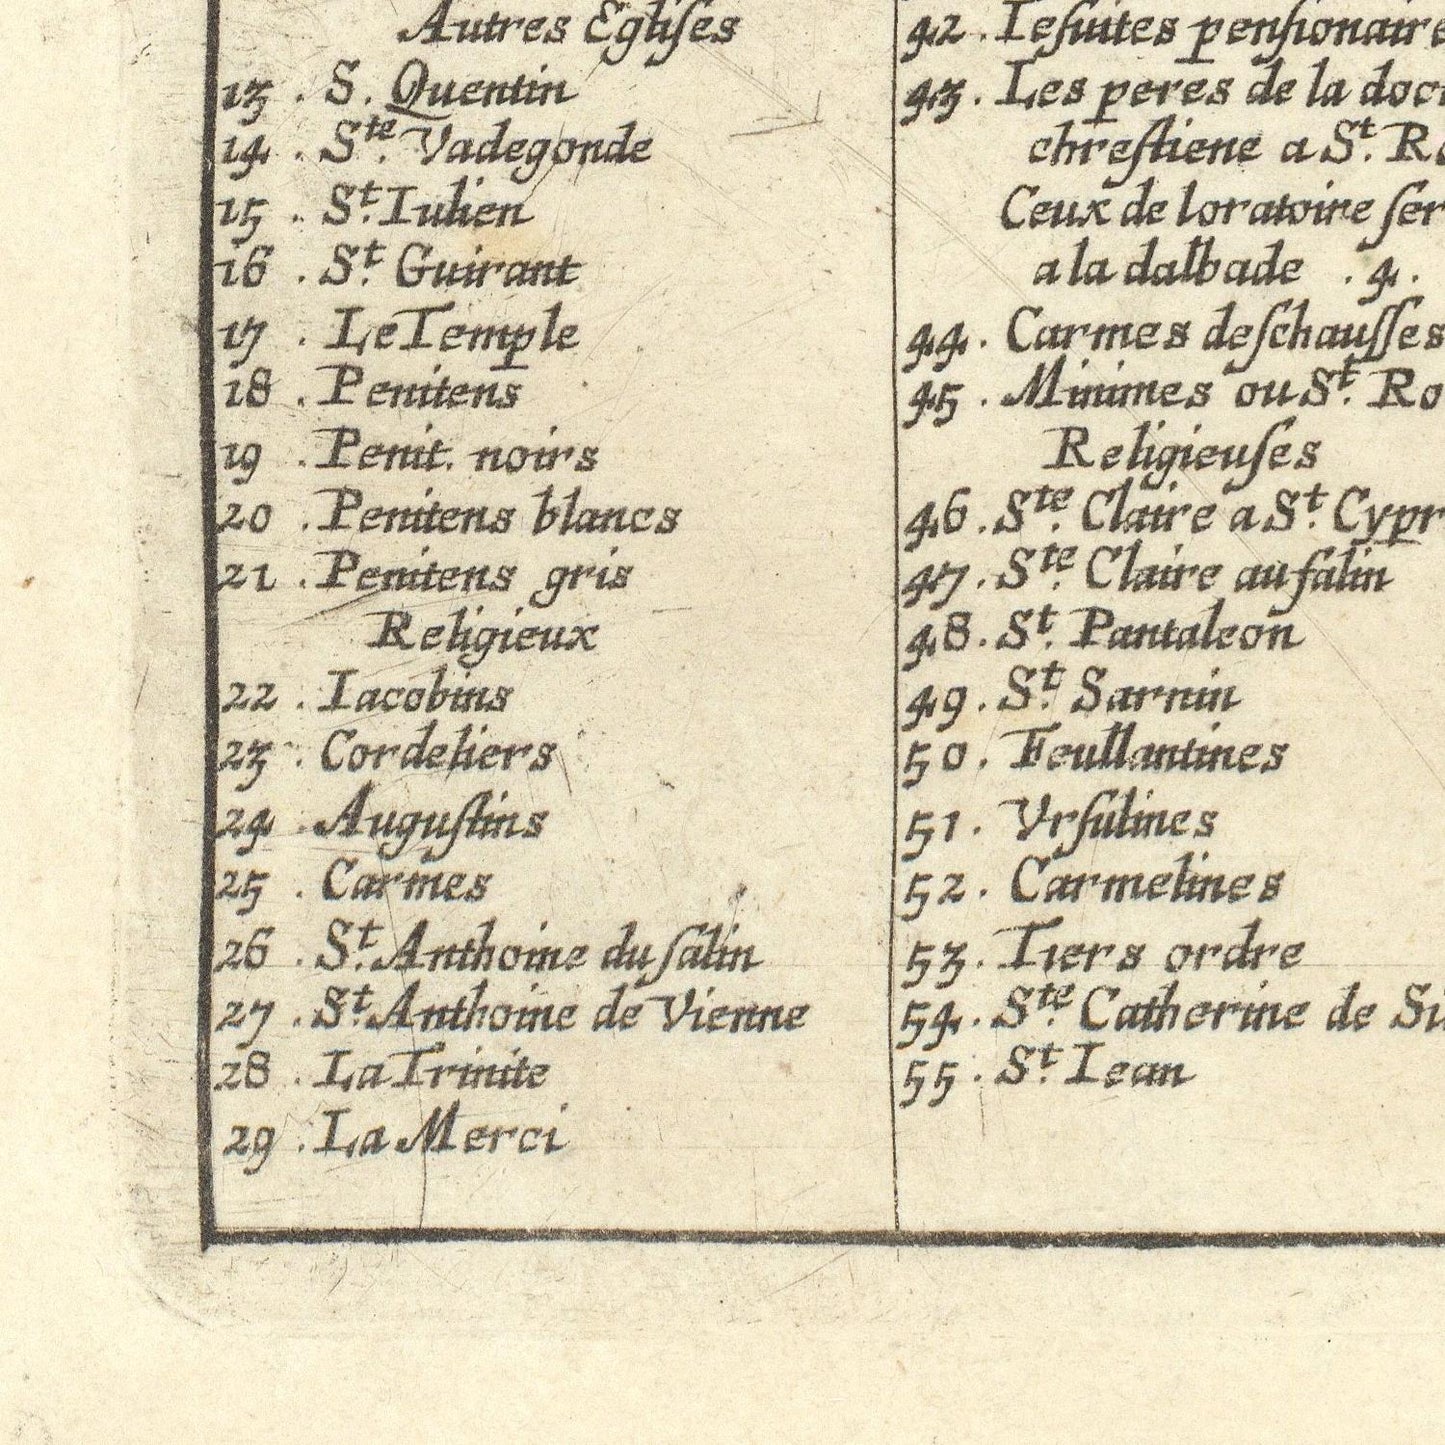 Autres Egliſes
13 . S. Quentin
14 . Ste. Vadegonde
15 . St. Iulien
16 . St. Guirant
17 . Le Temple
18 . Penitens
19 . Penit. noirs
20 . Penitens blancs
21 . Penitens gris
Religieux
22 . Iacobins
23 . Cordeliers
24 . Auguſtins
25 . Carmes
26 . St. Anthoine du ſalin
27 . St. Anthoine de Vienne
28 . La Trinite
29 . La Merci
42 . Ieſuites penſionaire
43 . Les peres de la
chreſtiene a St.
Ceux de loratoire
a la dalbade . 4 .
44 . Carmes deſchauſſes
45 . Minimes ou St.
Religieuſes
46 . Ste. Claire a St. Cypr
47 . Ste. Claire au ſalin
48 . St. Pantaleon
49 . St. Sarnin
50 . Feullantines
51 . Vrſulines
52 . Carmelines
53 . Tiers ordre
54 . Ste. Catherine de
55 . St. Iean